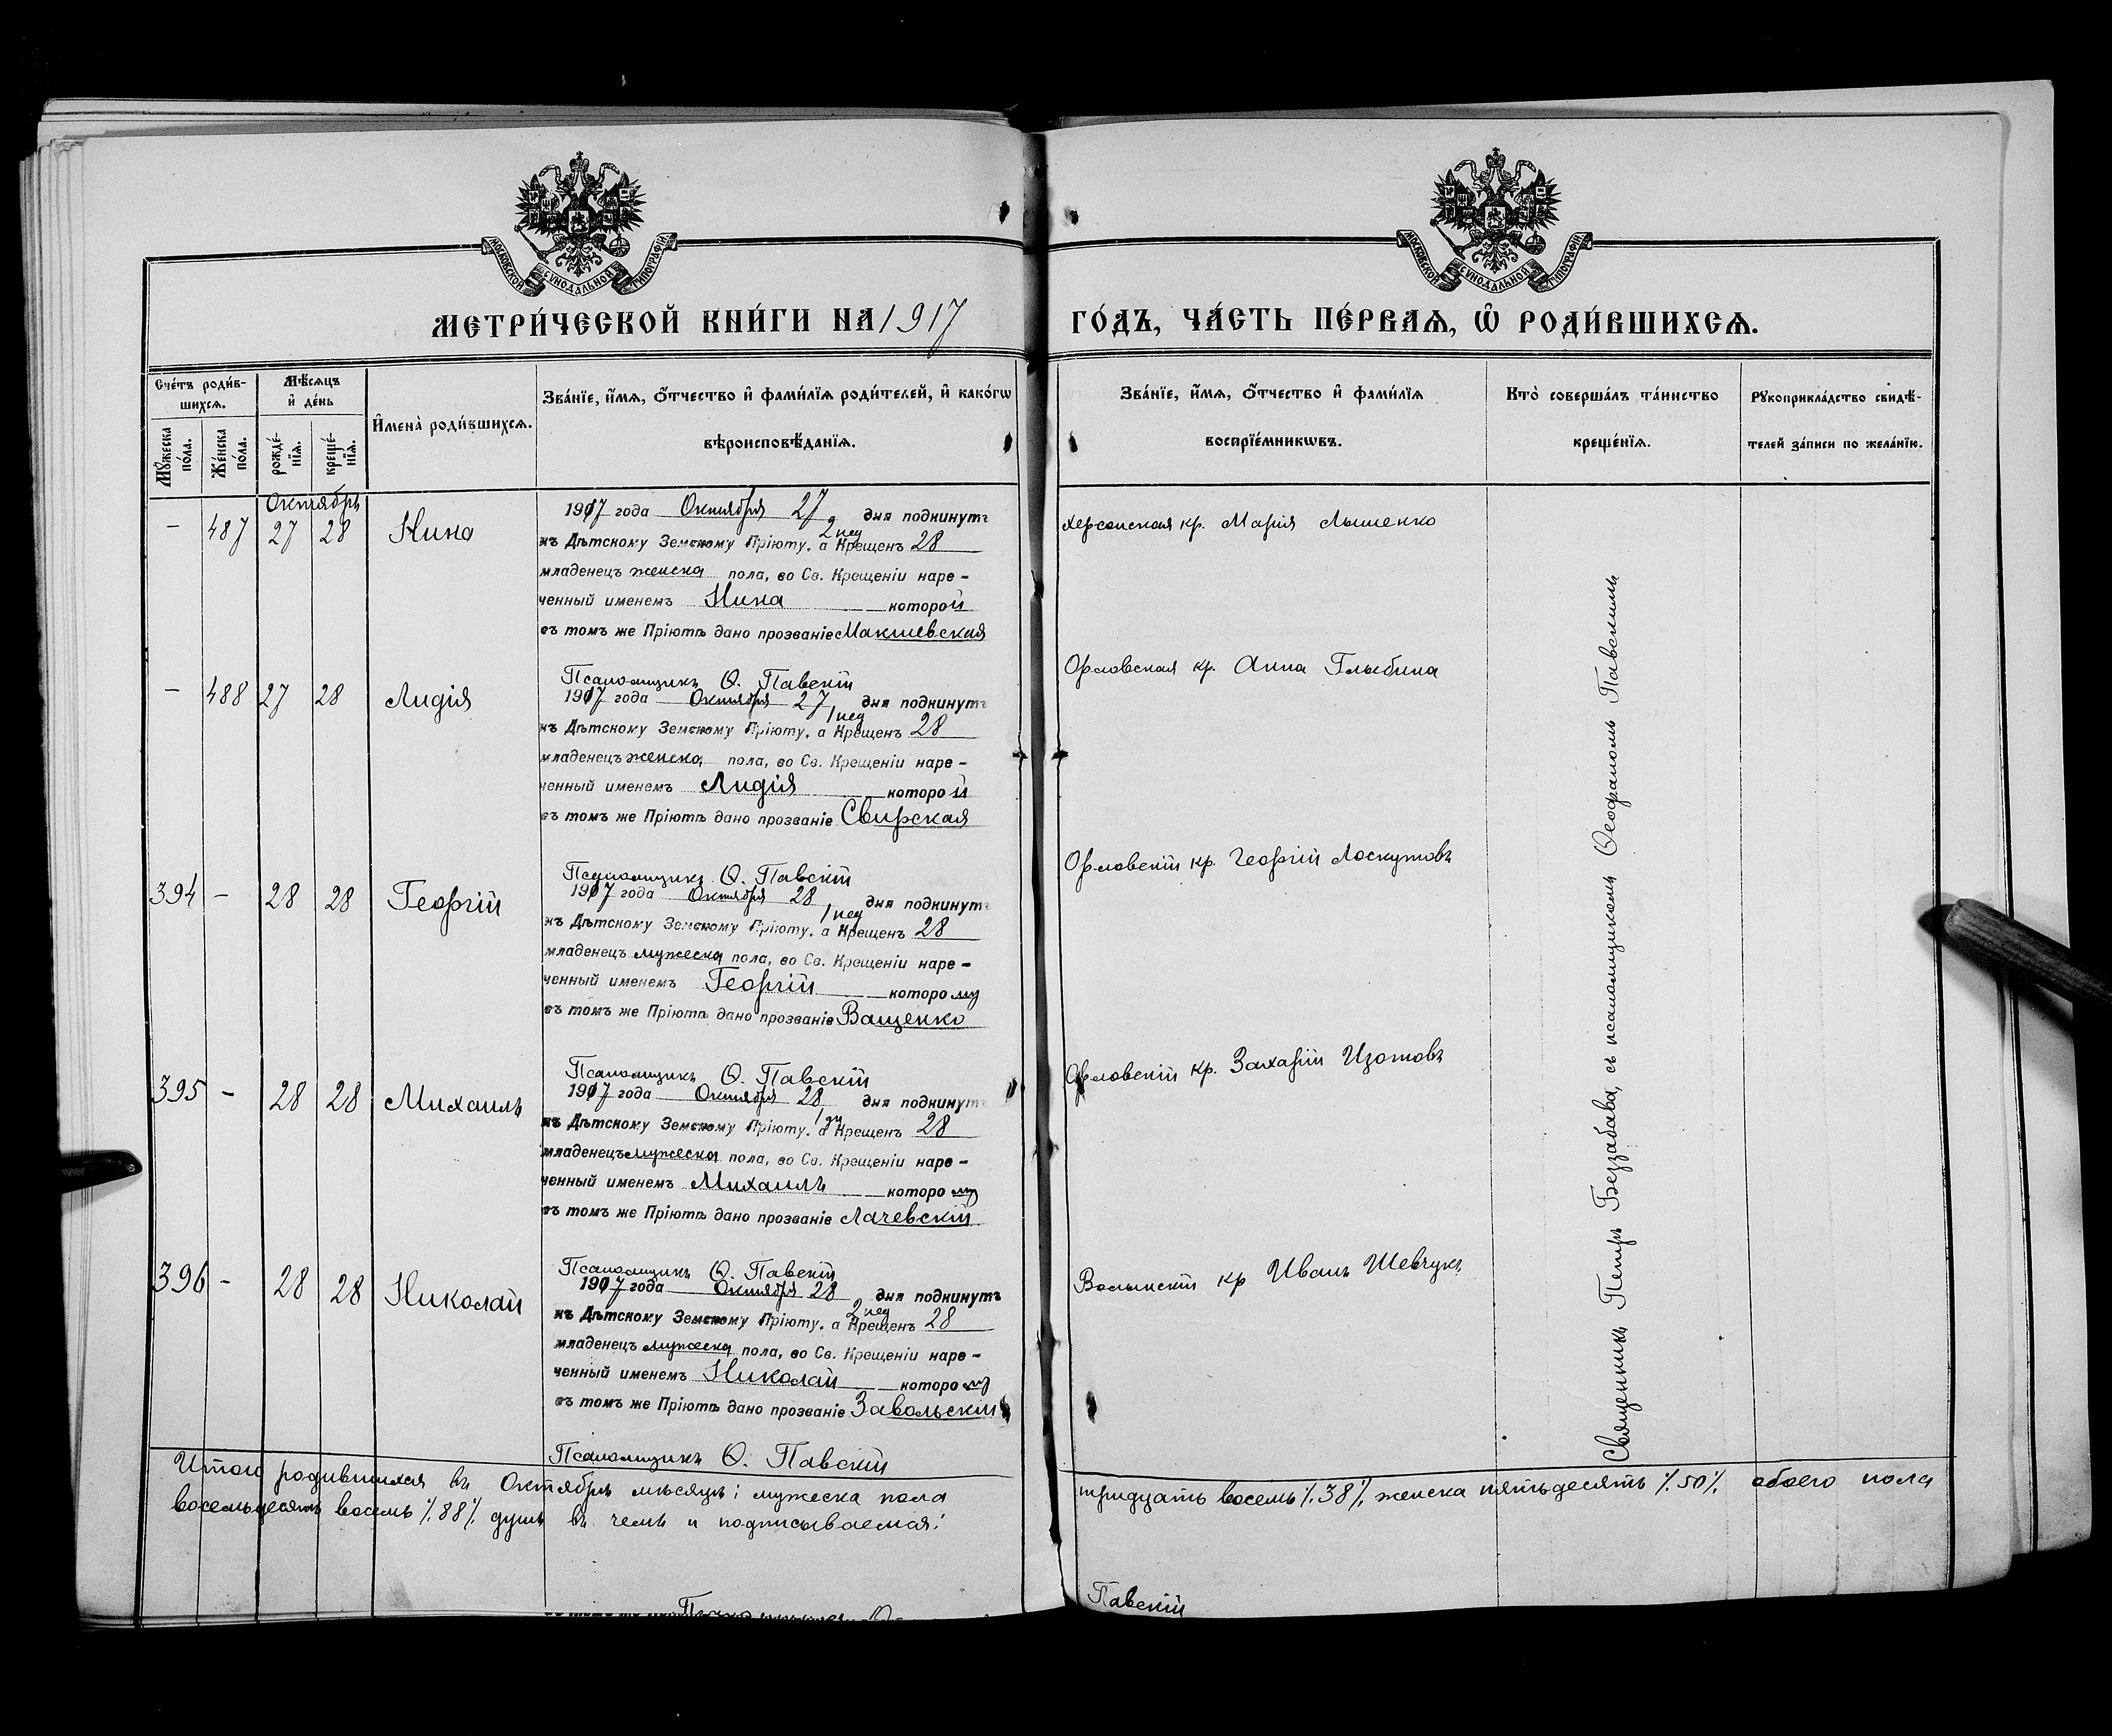 МОСКОВСКОЙ СѴНОДАЛЬНОЙ ТИПОГРАФІИ
МОСКОВСКОЙ СѴНОДАЛЬНОЙ ТИПОГРАФІИ
МЕТРИ́ЧЕСКОЙ КНИ́ГИ НА 1917
ГО́ДЪ, ЧА́СТЬ ПЕ́РВАѦ, Ѽ РОДИ́ВШИХСѦ.
Сче́тъ роди́в-
шихсѧ.
Мꙋ́жеска по́ла.
Же́нска по́ла.
Мѣ́сѧцъ
и҆ де́нь
рожде́-
нїѧ.
креще́-
нїѧ.
И҆мена̀ роди́вшихсѧ.
Зва́нїе, и҆́мѧ, ѻ҆́тчество и҆ фами́лїѧ роди́телей, и҆ како́гѡ
вѣроисповѣ́данїѧ.
Зва́нїе, и҆́мѧ, ѻ҆́тчество и҆ фами́лїѧ
воспрїе́мникѡвъ.
Кто̀ соверша́лъ та́инство
креще́нїѧ.
Рꙋкоприкла́дство свидѣ́-
телей за́писи по жела́нїю.
Октябрь
— 487 27 28 Нина
1917 года Октября 27 дня подкинутъ
2 нед
къ Дѣтскому Земскому Пріюту, а Крещенъ 28
младенецъ женска пола, во Св. Крещеніи наре-
ченный именемъ Нина которой
въ томъ же Пріютѣ дано прозваніе Макшевская
Псаломщикъ Ѳ. Павскій
Херсонская кр. Марія Лышенко
— 488 27 28 Лидія
1917 года Октября 27 дня подкинутъ
1 нед
къ Дѣтскому Земскому Пріюту, а Крещенъ 28
младенецъ женска пола, во Св. Крещеніи наре-
ченный именемъ Лидія которой
въ томъ же Пріютѣ дано прозваніе Свирская
Псаломщикъ Ѳ. Павскій
Орловская кр. Анна Глыбина
394 — 28 28 Георгій
1917 года Октября 28 дня подкинутъ
1 нед
къ Дѣтскому Земскому Пріюту, а Крещенъ 28
младенецъ мужеска пола, во Св. Крещеніи наре-
ченный именемъ Георгій которому
въ томъ же Пріютѣ дано прозваніе Ващенко
Псаломщикъ Ѳ. Павскій
Орловскій кр. Георгій Лоскутовъ
395 — 28 28 Михаилъ
1917 года Октября 28 дня подкинутъ
къ Дѣтскому Земскому Пріюту, а Крещенъ 28
младенецъ мужеска пола, во Св. Крещеніи наре-
ченный именемъ Михаилъ которому
въ томъ же Пріютѣ дано прозваніе Лачевскій
Псаломщикъ Ѳ. Павскій
Орловскій кр. Захарій Изотовъ
396 — 28 28 Николай
1917 года Октября 28 дня подкинутъ
2 нед
къ Дѣтскому Земскому Пріюту, а Крещенъ 28
младенецъ мужеска пола, во Св. Крещеніи наре-
ченный именемъ Николай которому
въ томъ же Пріютѣ дано прозваніе Завольскій
Псаломщикъ Ѳ. Павскій
Волынскій кр Иванъ Шевчукъ
Священникъ Петръ Беззабава, съ псаломщикомъ Ѳеофаномъ Павскимъ
Итого родившихся въ Октябрѣ мѣсяцѣ: мужеска пола тридцать восемь ٪38٪ женска пятьдесятъ ٪50٪ обоего пола
восемьдесятъ восемь ٪88٪ душъ въ чемъ и подписываемся:
Павскій